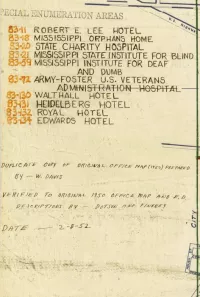 SPECIAL ENUMERATION AREAS
83-11 ROBERT E. LEE HOTEL
MISSISSIPPI ORPHANS HOME
83-20 STATE CHARITY HOSPITAL
83-21 MISSISSIPPI STATE INSTITUTE FOR BLIND
MISSISSIPPI INSTITUTE FOR DEAF
AND DUMB
ARMY-FOSTER U.S. VETERANS
ADMINISTRATION HOSPITAL
83-130 WALTHALL HOTEL
83-131 HEIDELBERG HOTEL
83-132 ROYAL HOTEL
EDWARDS HOTEL
DUPLICATE COPY OF ORIGINAL OFFICE MAP (1950) PREPARED
BY - W. DAVIS
VERIFIED TO ORIGINAL 1950 OFFICE MAP AND E.D.
DESCRIPTIONS BY -
DATE 2-8-52
CITY